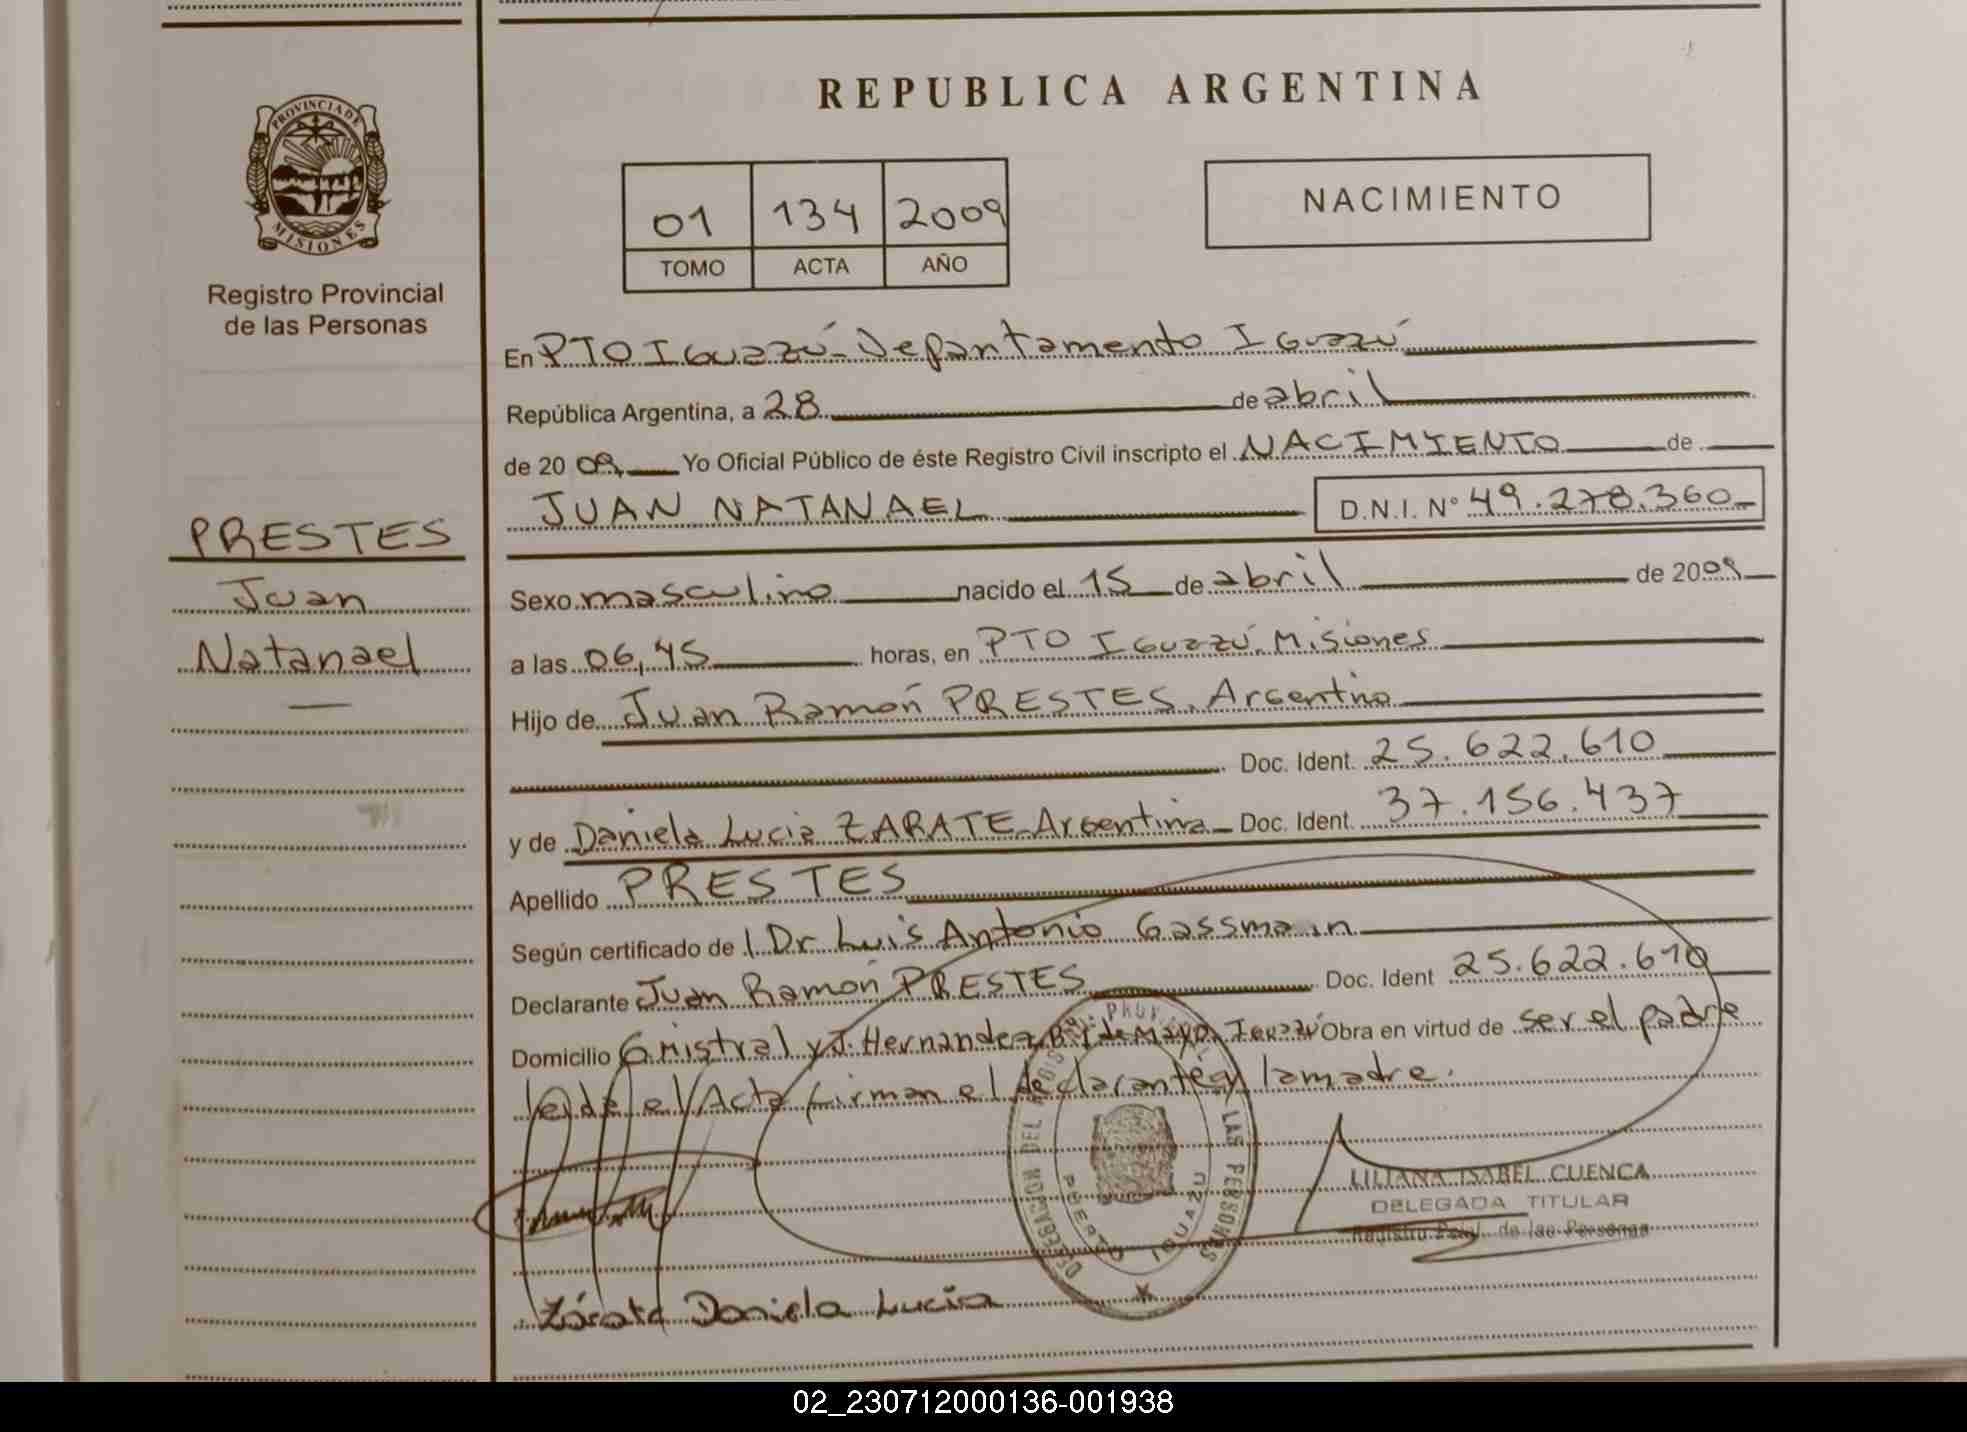 REPUBLICA ARGENTINA
PROVINCIA DE
MISIONES
Registro Provincial
de las Personas
01 134 2009
TOMO ACTA AÑO
NACIMIENTO
En PTO Iguazú - Departamento Iguazú
República Argentina, a 28 de abril
de 2009 Yo Oficial Público de éste Registro Civil inscripto el NACIMIENTO de
JUAN NATANAEL D.N.I. Nº 49.278.360
PRESTES
Juan
Natanael
Sexo masculino nacido el 15 de abril de 2009
a las 06,45 horas, en PTO Iguazú. Misiones
Hijo de Juan Ramón PRESTES. Argentino
Doc. Ident. 25.622.610
y de Daniela Lucia ZARATE - Argentina - Doc. Ident. 37.156.437
Apellido PRESTES
Según certificado de Dr Luis Antonio Gassmann
Declarante Juan Ramón PRESTES Doc. Ident 25.622.610
Domicilio G Mistral y J. Hernandez Bº 1 de Mayo. Iguazú Obra en virtud de ser el padre
leída el Acta firman el declarante y la madre.
DELEGACION DEL REGISTRO PROVINCIAL LAS PERSONAS
PUERTO IGUAZU
LILIANA ISABEL CUENCA
DELEGADA TITULAR
Registro Pcial. de las Personas
Zárate Daniela Lucia
02_230712000136-001938